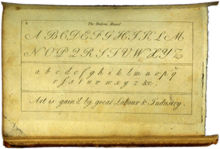 The Modern Hand
A B C D E F G H I K L M
N O P Q R S T U V W X Y Z
a b c d e f g h i k l m n o p q
r s t u v w x y z &c.
Art is gain'd by great Labour & Industry.